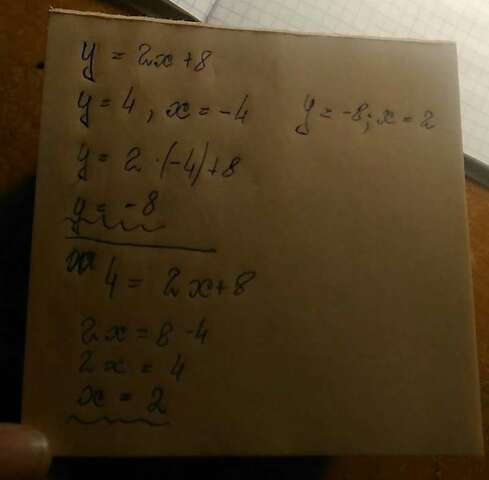 y = 2x+8
y=4, x=-4
y=-8; x=2
y=2·(-4)+8
y=-8
4 = 2x+8
2x=8-4
2x=4
x=2